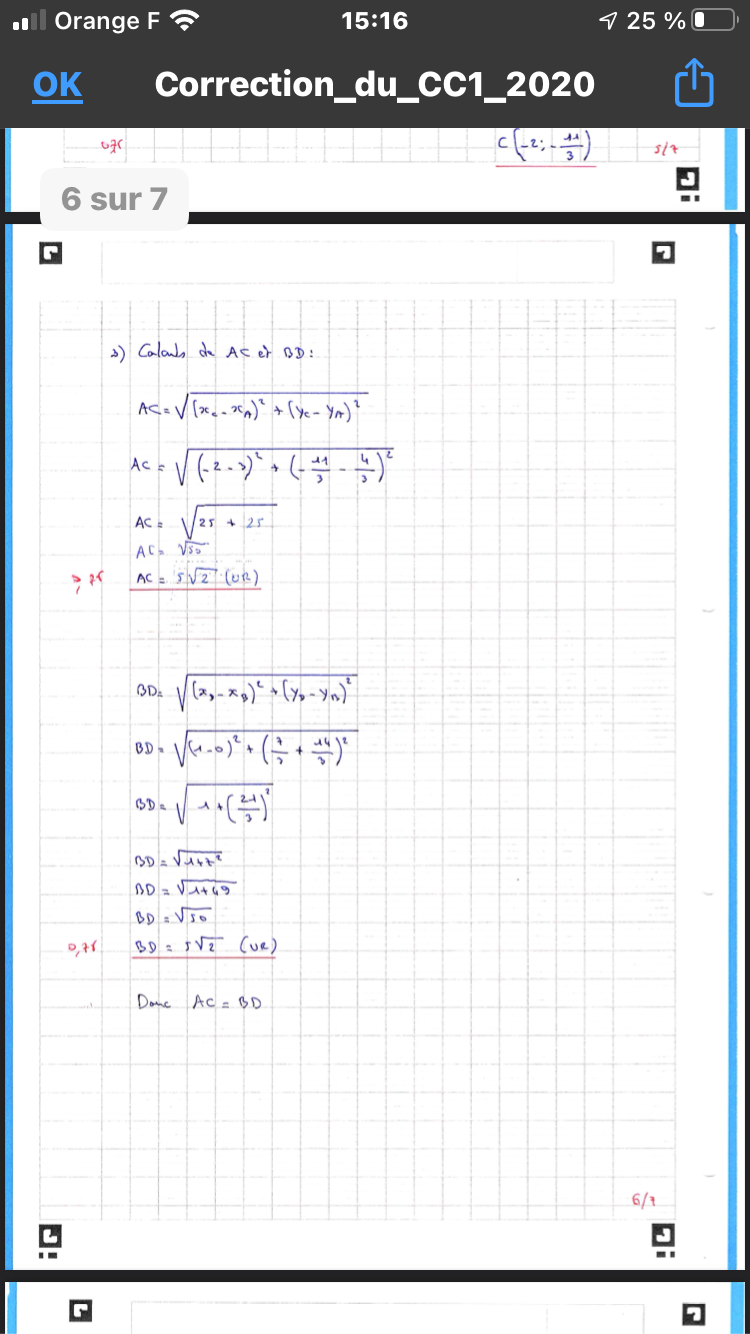 Orange F 15:16 25 %
OK Correction_du_CC1_2020
0,75 C(-2; -11/3) 5/7
6 sur 7
3) Calculs de AC et BD :
AC = √((x_C - x_A)² + (y_C - y_A)²)
AC = √((-2 - 3)² + (-11/3 - 4/3)²)
AC = √(25 + 25)
AC = √50
0,75 AC = 5√2 (UR)
BD = √((x_D - x_B)² + (y_D - y_B)²)
BD = √((1-0)² + (7/3 + 14/3)²)
BD = √(1 + (21/3)²)
BD = √(1+7²)
BD = √(1+49)
BD = √50
0,75 BD = 5√2 (UR)
Donc AC = BD
6/7